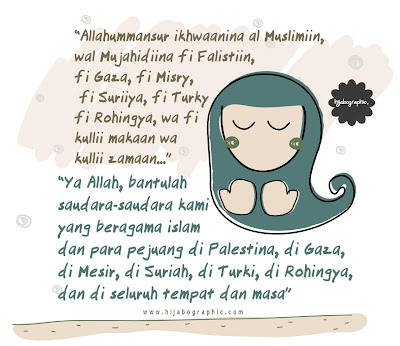 "Allahummansur ikhwaanina al Muslimiin,
wal Mujahidiina fi Falistiin,
fi Gaza, fi Misry,
fi Suriiya, fi Turky
fi Rohingya, wa fi
kullii makaan wa
kullii zamaan..."
hijabographic.
"Ya Allah, bantulah
saudara-saudara kami
yang beragama islam
dan para pejuang di Palestina, di Gaza,
di Mesir, di Suriah, di Turki, di Rohingya,
dan di seluruh tempat dan masa"
www.hijabographic.com